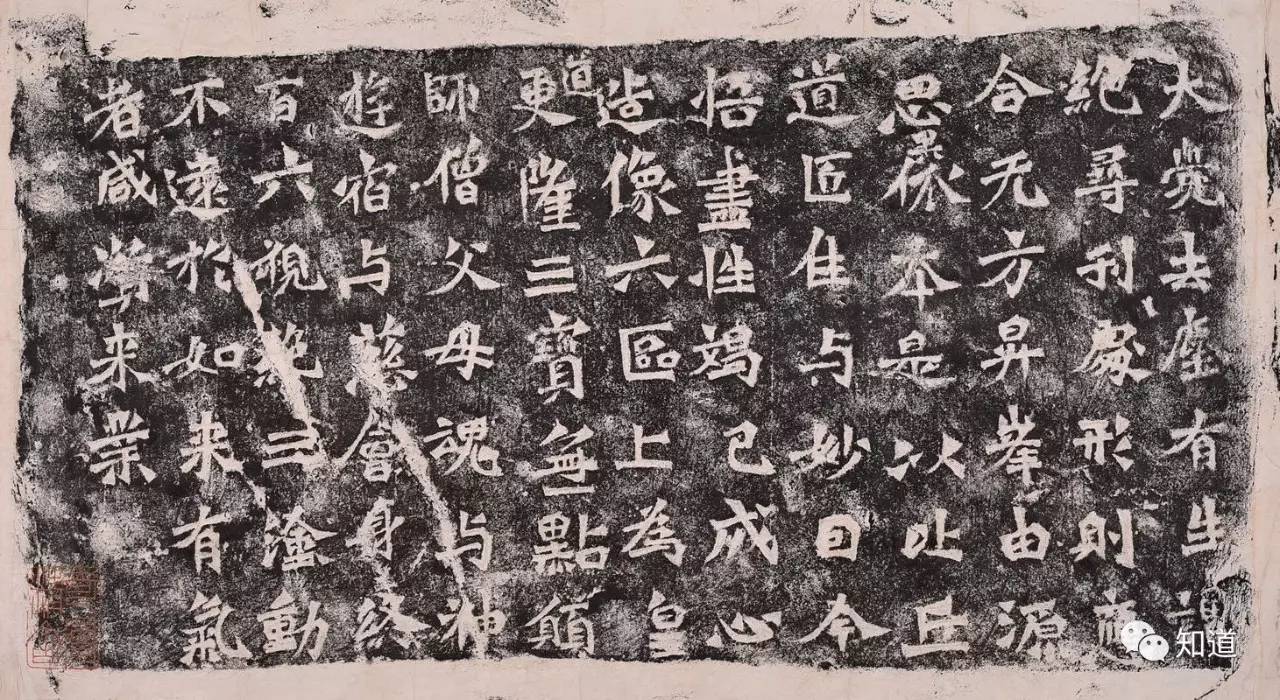 大覺去塵有生
絶尋刋形則福
合无方昇峯由源
思果依本是以比丘
道匠住与妙因今
悟盡性竭己成心
造像六區上為皇
道更隆三寶無點願
師僧父母魂与神
遊宿与慈會身終
百六視絶三塗動
不遠於如来有氣
者咸勞来業
知道